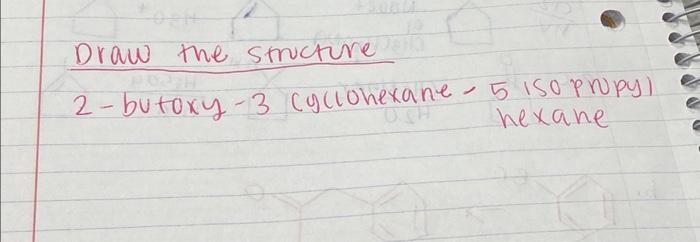 Draw the structure
2-butoxy-3 cyclohexane - 5 isopropyl
hexane